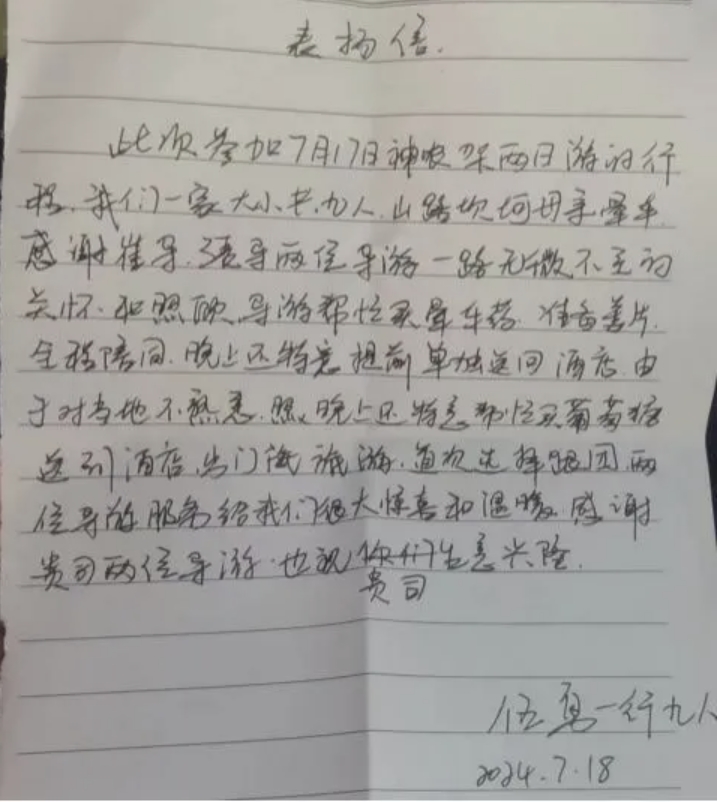 表扬信.
此次参加7月17日神农架两日游的行
程,我们一家大小共九人.山路坎坷母亲晕车.
感谢崔导.张导两位导游一路无微不至的
关怀.和照顾,导游帮忙买晕车药.准备姜片.
全程陪同.晚上还特意提前单独送回酒店.由
于对当地不熟悉.晚上还特意帮忙买葡萄糖
送到酒店.出门旅游.首次选择跟团.两
位导游服务给我们很大惊喜和温暖.感谢
贵司两位导游.也祝你们生意兴隆.
贵司
伍勇一行九人
2024.7.18